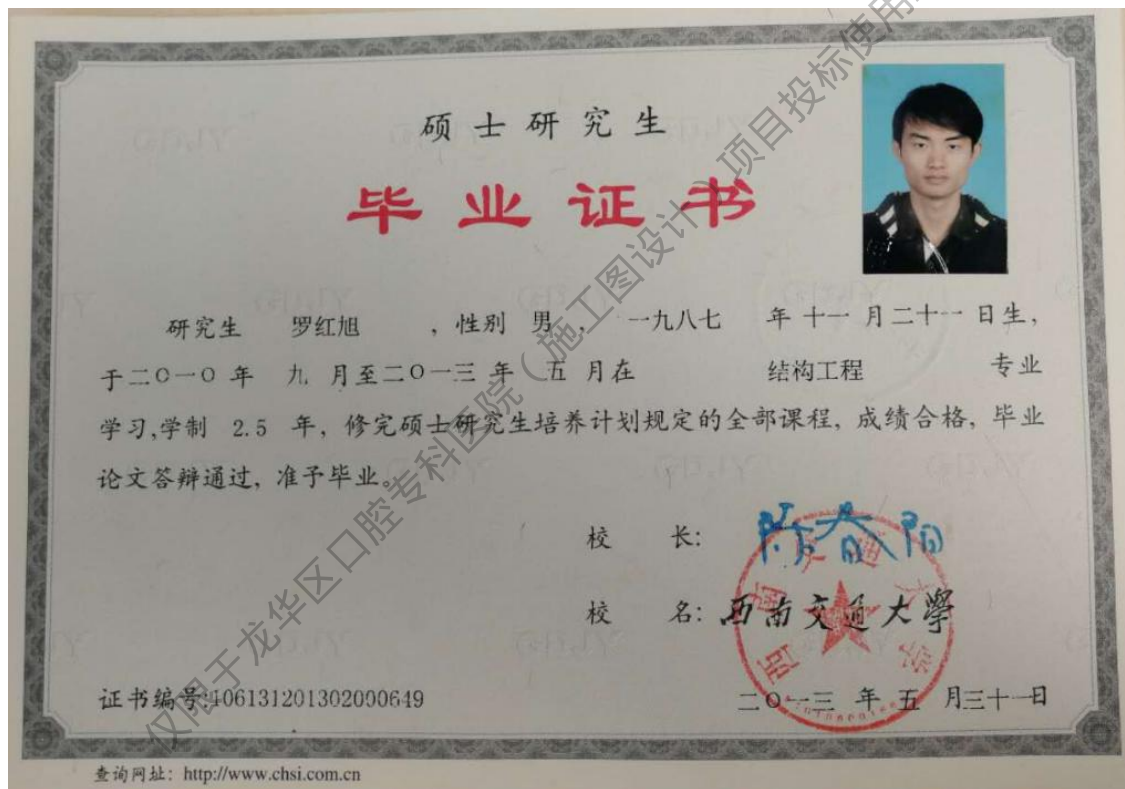 硕士研究生
毕业证书
研究生 罗红旭 ，性别 男 ， 一九八七 年 十一 月 二十一 日生，
于二〇一〇年 九 月至二〇一三年 五 月在 结构工程 专业
学习,学制 2.5 年，修完硕士研究生培养计划规定的全部课程，成绩合格，毕业
论文答辩通过，准予毕业。
校 长： 陈春阳
校 名：西南交通大學
证书编号:106131201302000649
二〇一三 年 五 月三十一日
查询网址：http://www.chsi.com.cn
仅限于龙华区口腔专科医院（施工图设计）项目投标使用